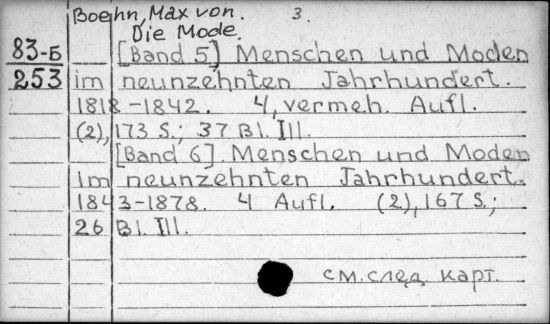 Boehn, Max von. 3.
Die Mode.
83-Б
253
[Band 5] Menschen und Moden
im neunzehnten Jahrhundert.
1818-1842. 4, vermeh. Aufl.
(2), 173 S.; 37 Bl. Ill.
[Band 6] Menschen und Moden
im neunzehnten Jahrhundert.
1843-1878. 4 Aufl. (2), 167 S.;
26 Bl. Ill.
см. след карт.